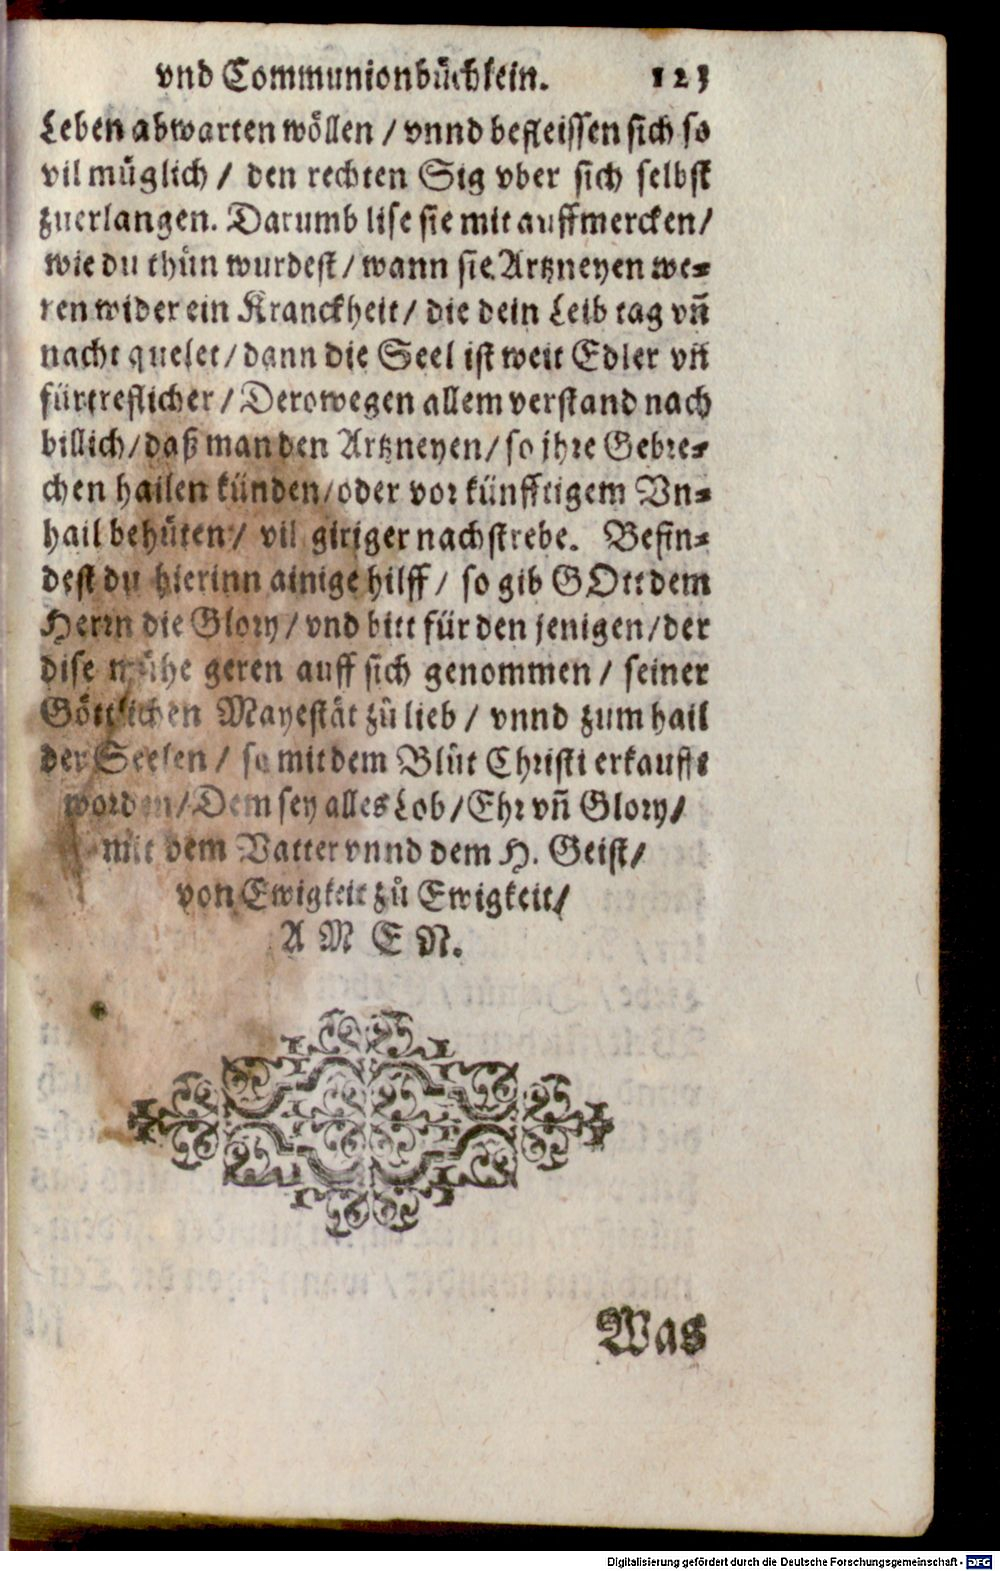 vnd Communionbůchlein. 123
Leben abwarten wöllen / vnnd befleissen sich so
vil müglich / den rechten Sig vber sich selbst
zuerlangen. Darumb lise sie mit auffmercken /
wie du thůn wurdest / wann sie Artzneyen we⸗
ren wider ein Kranckheit / die dein Leib tag vñ
nacht quelet / dann die Seel ist weit Edler vñ
fürtreflicher / Derowegen allem verstand nach
billich / daß man den Artzneyen / so jhre Gebre⸗
chen hailen künden / oder vor künfftigem Vn⸗
hail behüten / vil giriger nachstrebe. Befin⸗
dest du hierinn ainige hilff / so gib GOtt dem
Herrn die Glory / vnd bitt für den jenigen / der
dise mühe geren auff sich genommen / seiner
Göttlichen Mayestät zů lieb / vnnd zum hail
der Seelen / so mit dem Blůt Christi erkaufft
worden / Dem sey alles Lob / Ehr vñ Glory /
mit dem Vatter vnnd dem H. Geist /
von Ewigkeit zů Ewigkeit /
A M E N.
Was
Digitalisierung gefördert durch die Deutsche Forschungsgemeinschaft - DFG